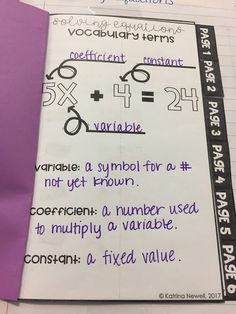 equations
solving equations
vocabulary terms
coefficient constant
5X + 4 = 24
variable
variable: a symbol for a #
not yet known.
coefficient: a number used
to multiply a variable.
constant: a fixed value.
© Katrina Newell, 2017
PAGE 1
PAGE 2
PAGE 3
PAGE 4
PAGE 5
PAGE 6